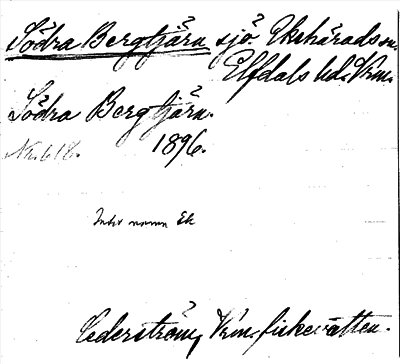 Södra Bergtjärn sjö. Ekshärads sn.
Elfdals hd. Vrm.
Södra Bergtjärn.
Nr. 618. 1896.
namn Ek
Cederström, Vrm. fiskevatten.